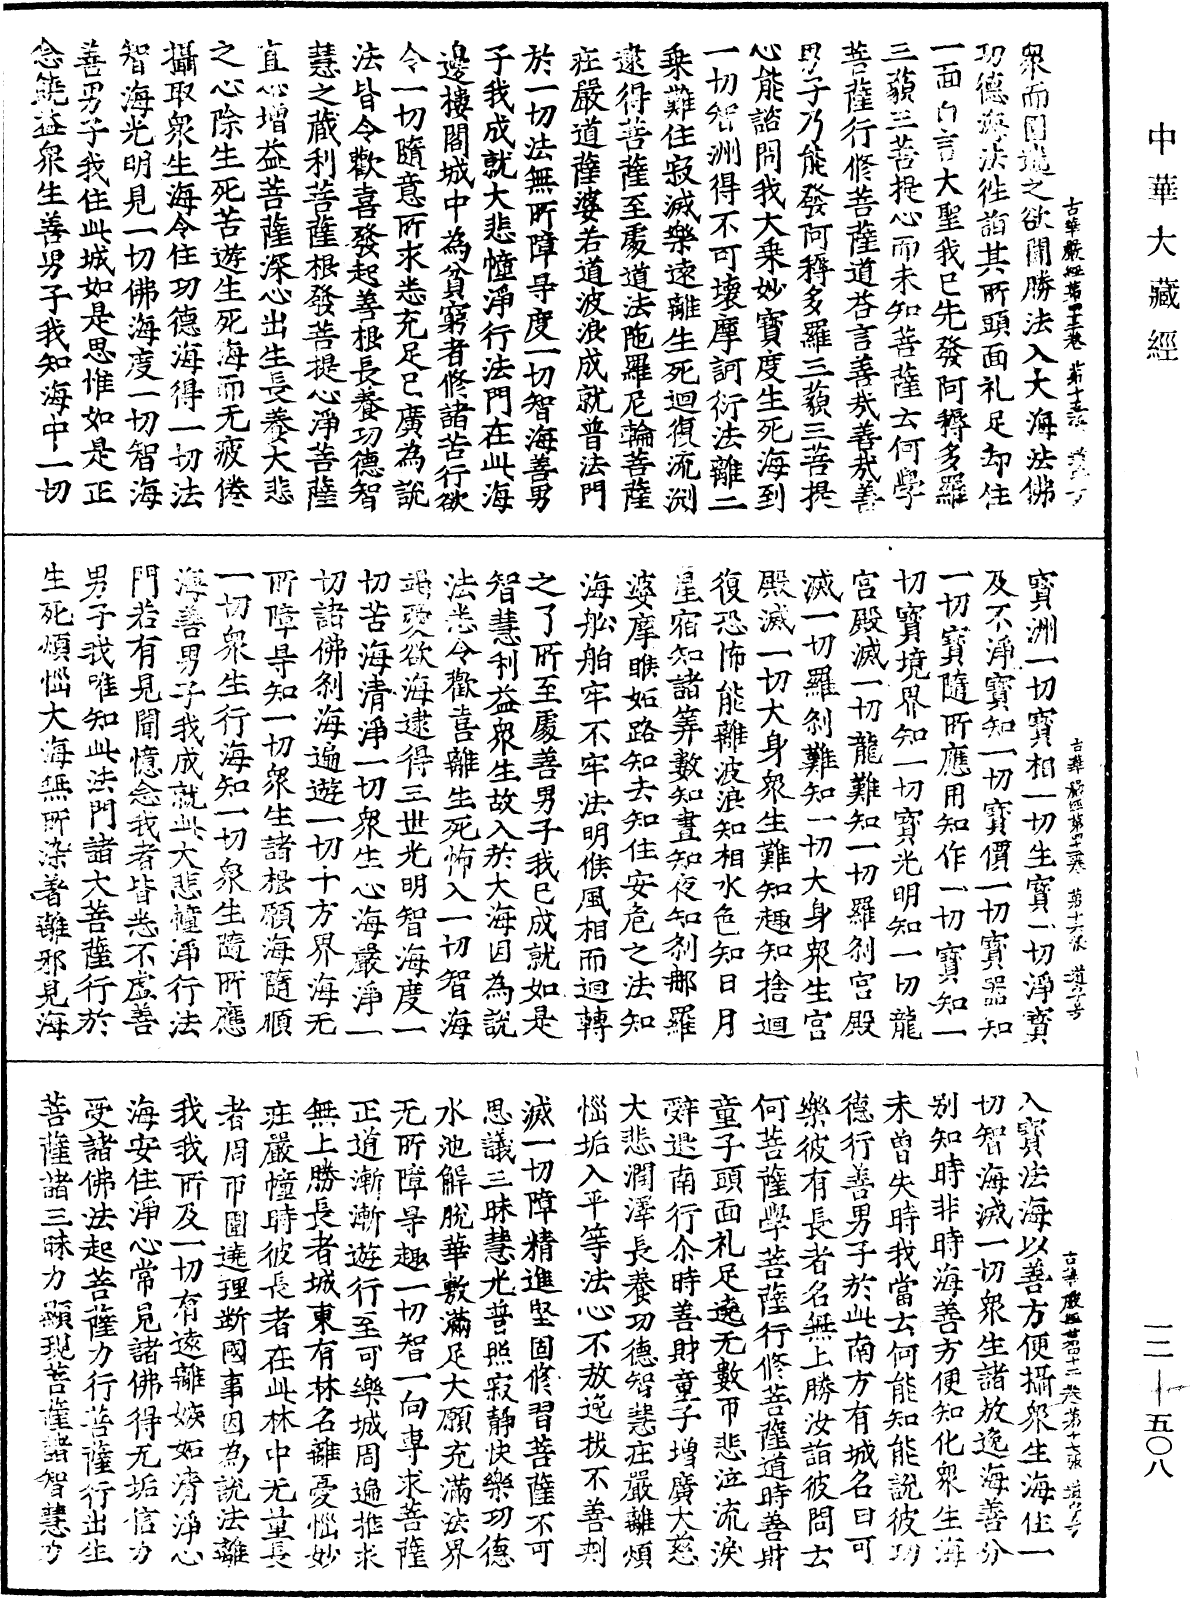 中華大藏經
眾而圍遶之欲聞勝法入大海法佛
功德海法往詣其所頭面礼足却住
一面白言大聖我已先發阿耨多羅
三藐三菩提心而未知菩薩云何學
菩薩行修菩薩道荅言善哉善哉善
男子乃能發阿耨多羅三藐三菩提
心能諮問我大乘妙寶度生死海到
一切智洲得不可壞摩訶衍法離二
乘難住寂滅樂遠離生死迴復流洄
逮得菩薩至處道法陁羅尼輪菩薩
莊嚴道薩婆若道波浪成就普法門
於一切法無所障㝵度一切智海善男
子我成就大悲幢淨行法門在此海
邊樓閣城中為貧窮者修諸苦行欲
令一切隨意所求悉充足已廣為說
法皆令歡喜發起善根長養功德智
慧之藏利菩薩根發菩提心淨菩薩
直心增益菩薩深心出生長養大悲
之心除生死苦遊生死海而无疲倦
攝取眾生海令住功德海得一切法
智海光明見一切佛海度一切智海
善男子我住此城如是思惟如是正
念饒益眾生善男子我知海中一切
寶洲一切寶相一切生寶一切淨寶
及不淨寶知一切寶價一切寶器知
一切寶隨所應用知作一切寶知一
切寶境界知一切寶光明知一切龍
宮殿滅一切龍難知一切羅剎宮殿
滅一切羅剎難知一切大身眾生宮
殿滅一切大身眾生難知趣知捨迴
復恐怖能離波浪知相水色知日月
星宿知諸筭數知晝知夜知剎那羅
婆摩睺妬路知去知住安危之法知
海舩舶牢不牢法明候風相而迴轉
之了所至處善男子我已成就如是
智慧利益眾生故入於大海因為說
法悉令歡喜離生死怖入一切智海
竭愛欲海逮得三世光明智海度一
切苦海清淨一切眾生心海嚴淨一
切諸佛剎海遍遊一切十方界海无
所障㝵知一切眾生諸根願海隨順
一切眾生行海知一切眾生隨所應
海善男子我成就此大悲幢淨行法
門若有見聞憶念我者皆悉不虛善
男子我唯知此法門諸大菩薩行於
生死煩惱大海無所染著離邪見海
入寶法海以善方便攝眾生海住一
切智海滅一切眾生諸放逸海善分
別知時非時海善方便知化眾生海
未曾失時我當云何能知能說彼功
德行善男子於此南方有城名曰可
樂彼有長者名無上勝汝詣彼問云
何菩薩學菩薩行修菩薩道時善財
童子頭面礼足遶无數帀悲泣流淚
辭退南行尒時善財童子增廣大慈
大悲潤澤長養功德智慧莊嚴離煩
惱垢入平等法心不放逸拔不善刾
滅一切障精進堅固修習菩薩不可
思議三昧慧光普照寂靜快樂功德
水池解脫華敷滿足大願充滿法界
无所障㝵趣一切智一向專求菩薩
正道漸漸遊行至可樂城周遍推求
無上勝長者城東有林名離憂惱妙
莊嚴幢時彼長者在此林中无量長
者周帀圍遶理斷國事因為說法離
我我所及一切有遠離嫉妬清淨心
海安住淨心常見諸佛得无垢信力
受諸佛法起菩薩力行菩薩行出生
菩薩諸三昧力顯現菩薩諸智慧力
一二—五〇八